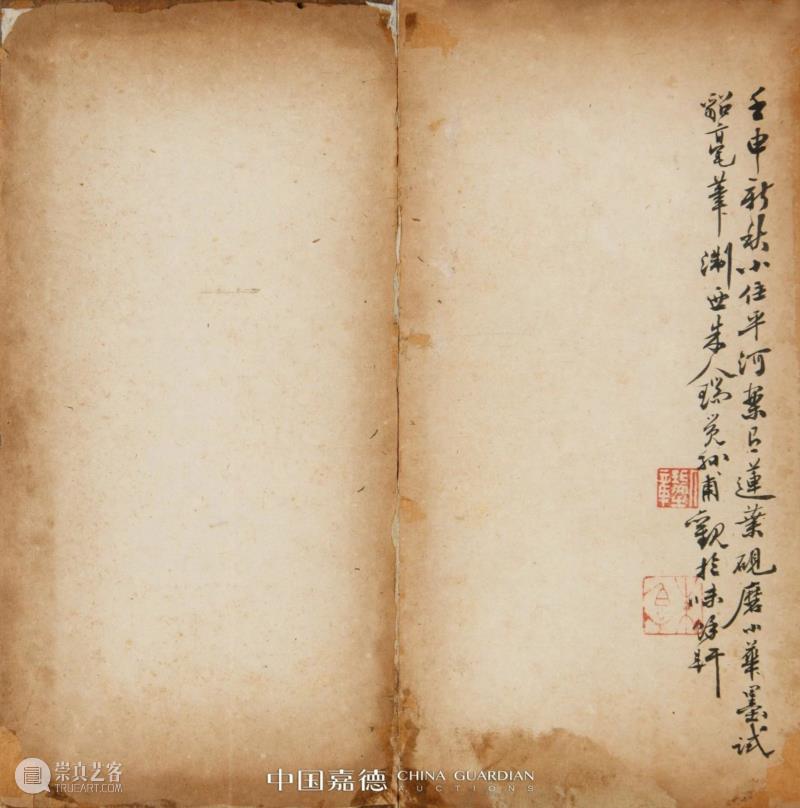 壬申新秋小住平河㠯蓮葉硯磨小華墨試
貂毫筆淛西朱人瑞甫觀於味餘軒
崇真艺客
TRUEART.COM
中国嘉德 CHINA GUARDIAN
AUCTIONS